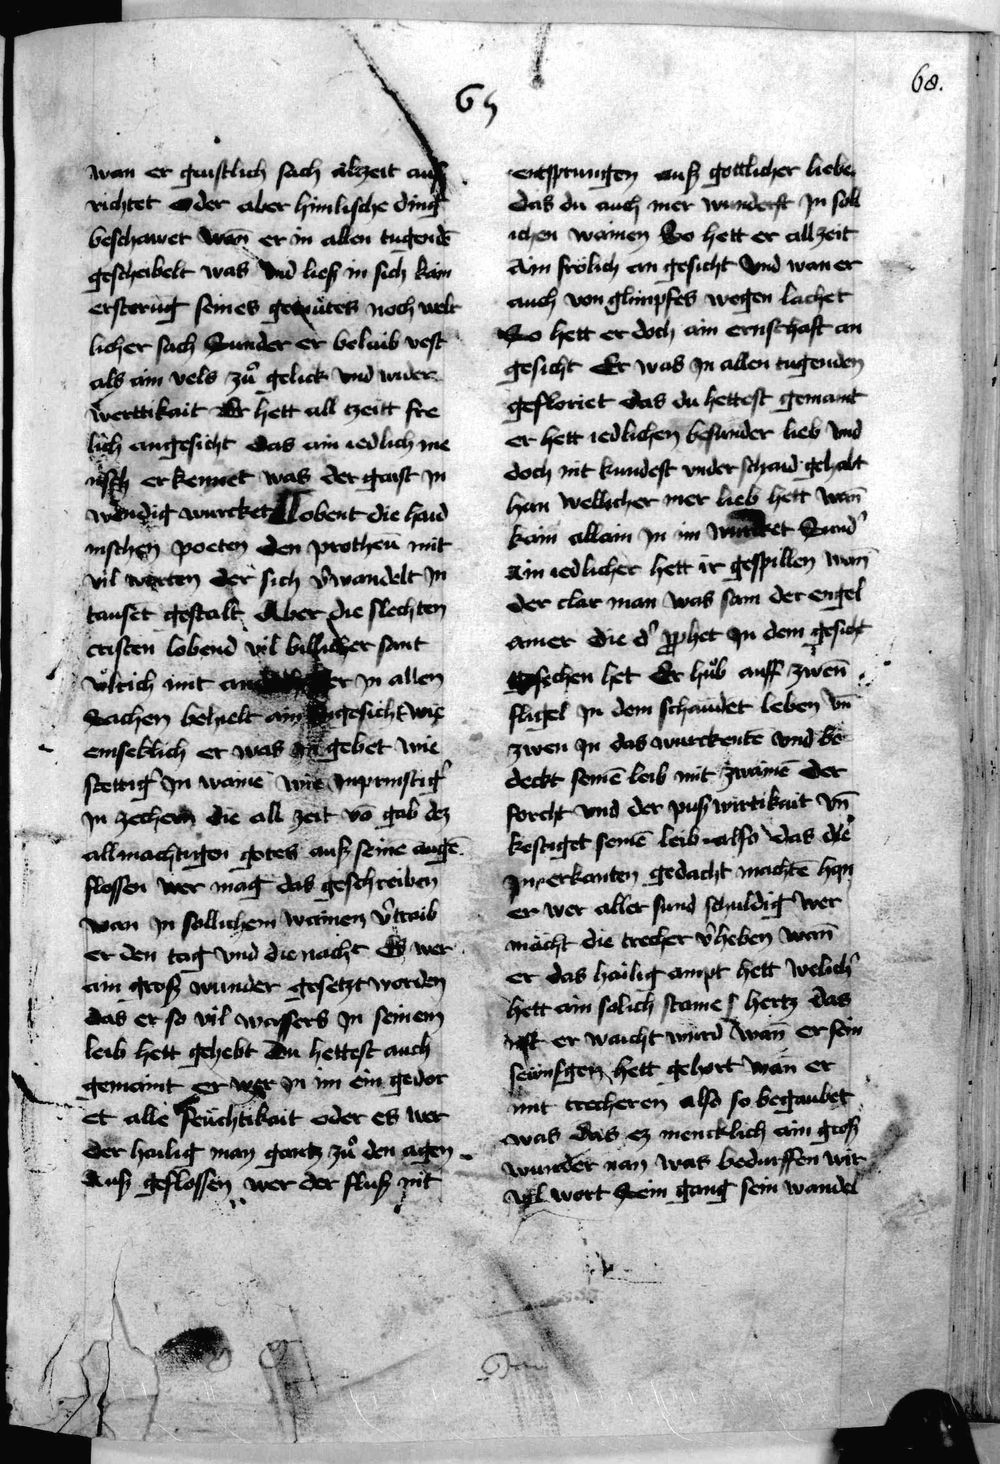 65
68.
wan er gaistlich sach alzeit auß
richtet oder aber himlische ding
beschawet wan̄ er in allen tugendē
gescheibelt was vnd ließ in sich kain
ersterūg seines gemu̇tes noch welt
licher sach Sunder er belaib vest
als ain vels zuͦ gelick vnd wider
werttikait Er hett all tzeitt fre
lich angesicht das ain iedlich me
nsch erkennet was der gaist in
wendig wurcket Lobent die haid
nischen poeten den protheū mit
vil worten der sich v̓wandelt in
tauset gestalt Aber die slechten
cristen lobend vil billicher sant
vͦlrich mit er in allen
Sachen behielt ain angesicht wie
emseklich er was in gebet wie
stettig In waine wie Inprinstig
In zechern die all zeit vō gab dez
allmachtigen gotes auß seine augē
flossen wer mag das geschreiben
wan in sollichem wainen v̓traib
er den tag vnd die nacht Es wer
ain groß wunder gesetzt worden
das er so vil wassers in seinem
leib hett gehebt Du hettest auch
gemaint er wer in im ein gedor
et alle feuchtikait oder es wer
der hailig man gantz zuͦ den agen
Auß geflossen wer der fluß nit
entsprungen auß gottlicher liebe
das du auch mer wunderst In soll
ichen wainen So hett er allzeit
Ain frölich an gesicht vnd wan er
auch von glimpfes wegen lachet
So hett er doch ain ernschaft an
gesicht Er was in allen tugenden
gefloriet das du hettest gemant
er hett iedlichen besunder lieb vnd
doch nit kundest vnderschaid gehabt
han wellicher mer lieb hett wan̄
kain allain in im wurcket Sund̓
Ain iedlicher hett ir gespillen wan̄
der clar man was sam der engel
ainer die d̓ p̱phet In dem gesicht
gesechen het Er huͦb auff zwen̄
fligel in dem schaudet leben vn̄
zwen in das wurckente vnd be
deckt seinē leib mit zwainē der
forcht vnd der puß wirtikait vn̄
kestiget seinē leib also das die
In erkanten gedacht machtē han
er wer aller sund schuldig wer
mācht die trecher v̓heben wan̄
er das hailig ampt hett welich̓
hett ain solich staine hertz das
nit er waicht wurd wan̄ er sein
seuinfgen hett gehort wan er
mit trecheren also so begaubet
was das ez mencklich ain groß
wunder nan was bedurffen wir
vil wort Sein gang sein wandel